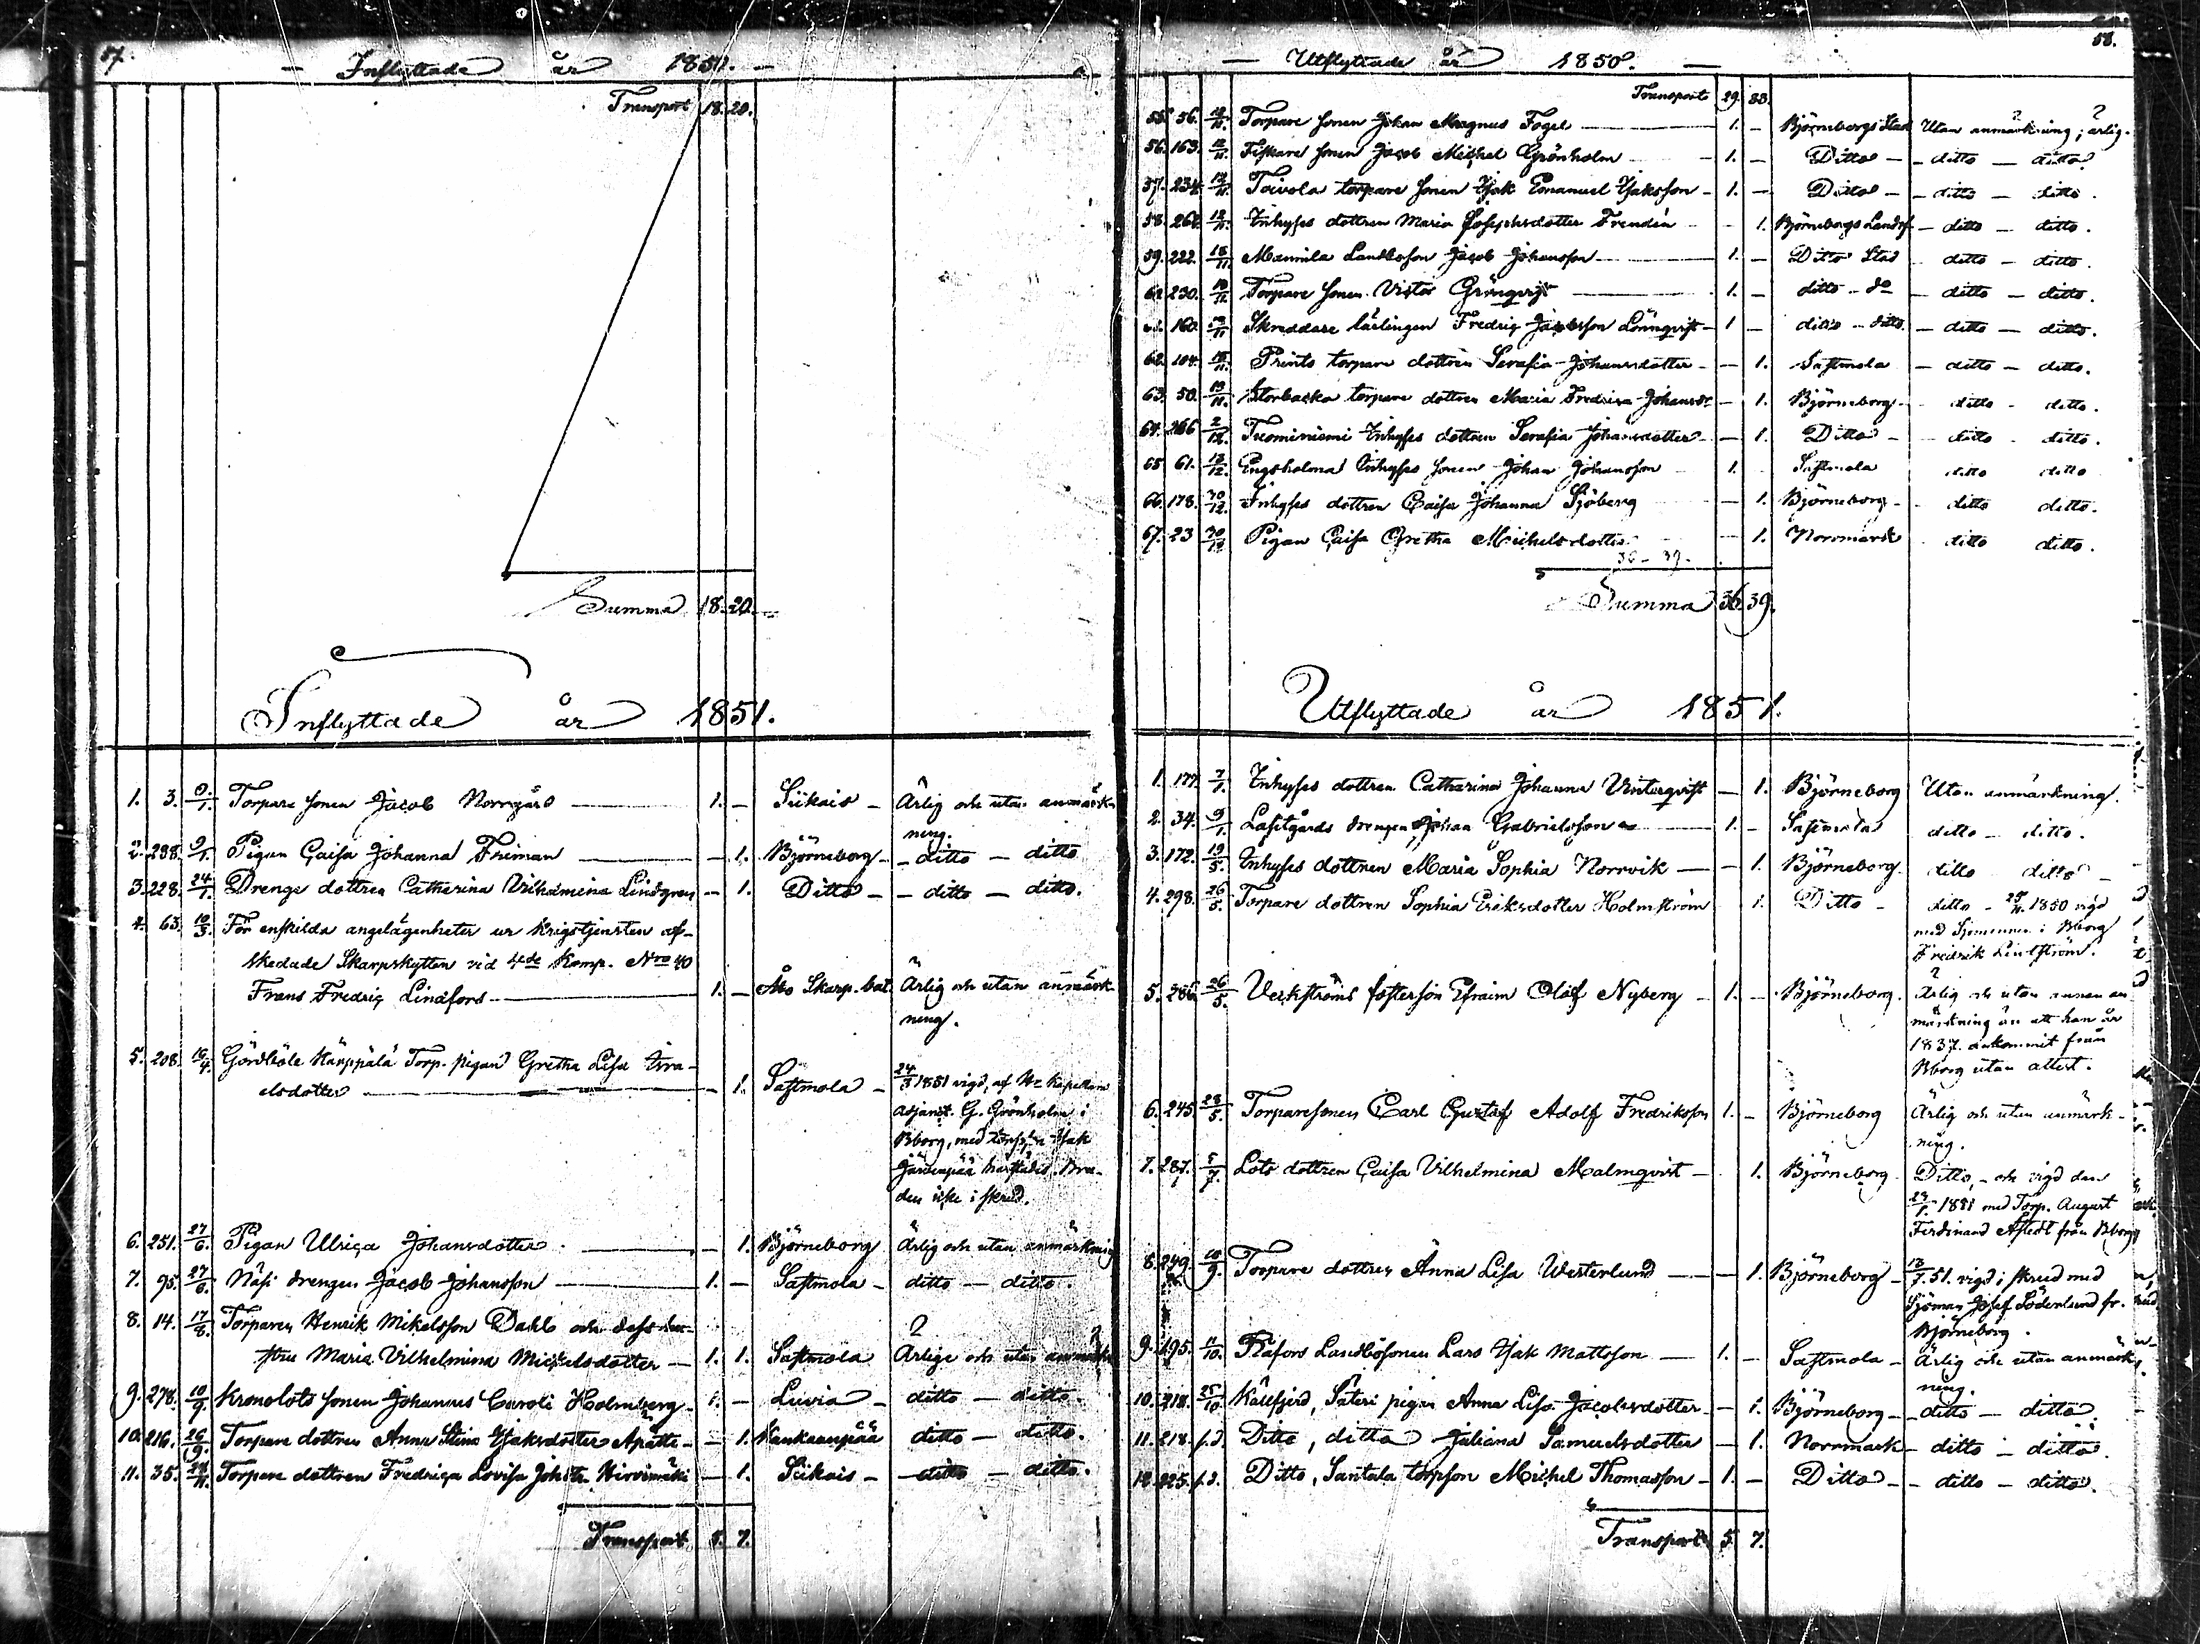 57.
Inflyttade år 1851.
Transport 18. 20.
Summa 18. 20.
Inflyttade år 1851.
1. 3. 9/1. Torpare sonen Jacob Norrgård 1. – Siikais – Ärlig och utan anmärk-
ning.
2. 298. 9/1. Pigan Caisa Johanna Friman – 1. Björneborg – ditto – ditto
3. 228. 24/1. Drengs dottren Catharina Vilhelmina Lindgren – 1. Ditto – ditto – ditto.
4. 63. 10/3. För enskilda angelägenheter ur Krigstjensten af-
skedade Skarpskytten vid 4de Komp. Nro 40
Frans Fredrig Lindfors 1. – Åbo Skarp. bat. Ärlig och utan anmärk-
ning.
5. 208. 15/4. Gördböle Härppälä Torp. pigan Gretha Lisa Isra-
elsdotter – 1. Sastmola – 24/3 1851 vigd, af Hr Kapellans
adjunct. G. Grönholm i
Bborg, med Isak
härstädes. Bru-
den icke i skrud.
6. 251. 27/6. Pigan Ulrica Johansdotter – 1. Björneborg Ärlig och utan anmärkning
7. 95. 27/6. Näsi drengen Jacob Johansson 1. – Sastmola – ditto – ditto.
8. 14. 17/8. Torparen Henrik Mikelsson Dahl och dess hu-
stru Maria Vilhelmina Michelsdotter – 1. 1. Sastmola Ärlige och utan anmärkn
9. 278. 10/9. Kronolots sonen Johannes Caroli Holmberg 1. – Luvia – ditto – ditto.
10. 216. 26/9. Torpare dottren Anna Stina Isaksdotter – 1. Kankaanpää ditto – ditto.
11. 35. Torpare dottren Fredrica Lovisa Hirvimäki – 1. Siikais – ditto – ditto.
Transport 5. 7.
58.
Utflyttade år 1850.
Transport 29. 33.
55. 56. 12/11. Torpare sonen Johan Magnus Fogel 1. – Björneborgs Stad Utan anmärkning; ärlig.
56. 163. 12/11. Fiskare sonen Jacob Michel Grönholm 1. – Ditto – ditto – ditto
57. 234. 12/11. Toivola torpare sonen Isak Emanuel Isaksson – 1. – Ditto – ditto – ditto.
58. 262. 12/11. Inhyses dottren Maria Josephsdotter Frendén – 1. Björneborgs Landsf. – ditto – ditto.
59. 222. Mannila Landbosson Jacob Johansson 1. – Ditto Stad – ditto – ditto.
60. 230. Torpare sonen Victor Grönqvist 1. – ditto – do – ditto – ditto.
61. 160. Skreddare lärlingen Fredrig Jacobsson Lönnqvist – 1 – ditto – ditto – ditto – ditto.
62. 104. Prints torpare dottren Serafia Johansdotter – 1. Sastmola – ditto – ditto.
63. 50. 19/11. Storbacka torpare dottren Maria Fredrica Johansdr – 1. Björneborg – ditto – ditto.
64. 266 2/12. Tuominiemi Inhyses dottren Serafia Johansdotter – 1. Ditto – ditto – ditto.
65 61. 13/12. Engsholma Inhyses sonen Johan Johansson 1. Sastmola ditto ditto
66. 178. 30/12. Inhyses dottren Caisa Johanna Sjöberg – 1. Björneborg – ditto ditto.
67. 23 30/12. Pigan Caisa Gretha Michelsdotter – 1. Norrmark ditto ditto.
36 – 39.
Summa 36. 39.
Utflyttade år 1851.
1. 177. 7/1. Inhyses dottren Catharina Johanna Vinterqvist – 1. Björneborg Utan anmärkning.
2. 34. 9/1. Lasilgårds drengen Johan Gabrielsson 1. – Sastmola ditto – ditto.
3. 172. 19/5. Inhyses dottren Maria Sophia Norrvik – 1. Björneborg. ditto ditto
4. 298. 26/5. Torpare dottren Sophia Eriksdotter Holmström 1. Ditto – ditto – 25/11. 1850 vigd
med Sjömannen i Bborg
Fredrik Lindström.
5. 286. 26/5. Veckströms fosterson Efraim Olof Nyberg – 1. – Björneborg. Ärlig och utan annan an
märkning än att han år
1837. ankommit från
Bborg utan attest.
6. 245. 28/5. Torparesonen Carl Gustaf Adolf Fredriksson 1. – Björneborg Ärlig och utan anmärk-
ning.
7. 287. 5/7. Lots dottren Caisa Vilhelmina Malmqvist – 1. Björneborg Ditto, – och vigd den
1851 med Torp. August
Ferdinand från Bborg
8. 249. 10/9. Torpare dottren Anna Lisa Westerlund – 1. Björneborg – 13/7. 51. vigd i skrud med
Sjöman Josef Söderlund fr.
Björneborg.
9. 195. 11/10. Landbosonen Lars Isak Mattsson 1. – Sastmola – Ärlig och utan anmärk-
ning.
10. 218. 25/10 Källfjerd, Säteri pigan Anna Lisa Jacobsdotter – 1. Björneborg – ditto – ditto.
11. 218. s.d. Ditto, ditto Juliana Samuelsdotter – 1. Norrmark – ditto – ditto.
12. 225. s.d. Ditto, Santala torpson Michel Thomasson – 1. – Ditto – ditto – ditto.
Transport 5. 7.